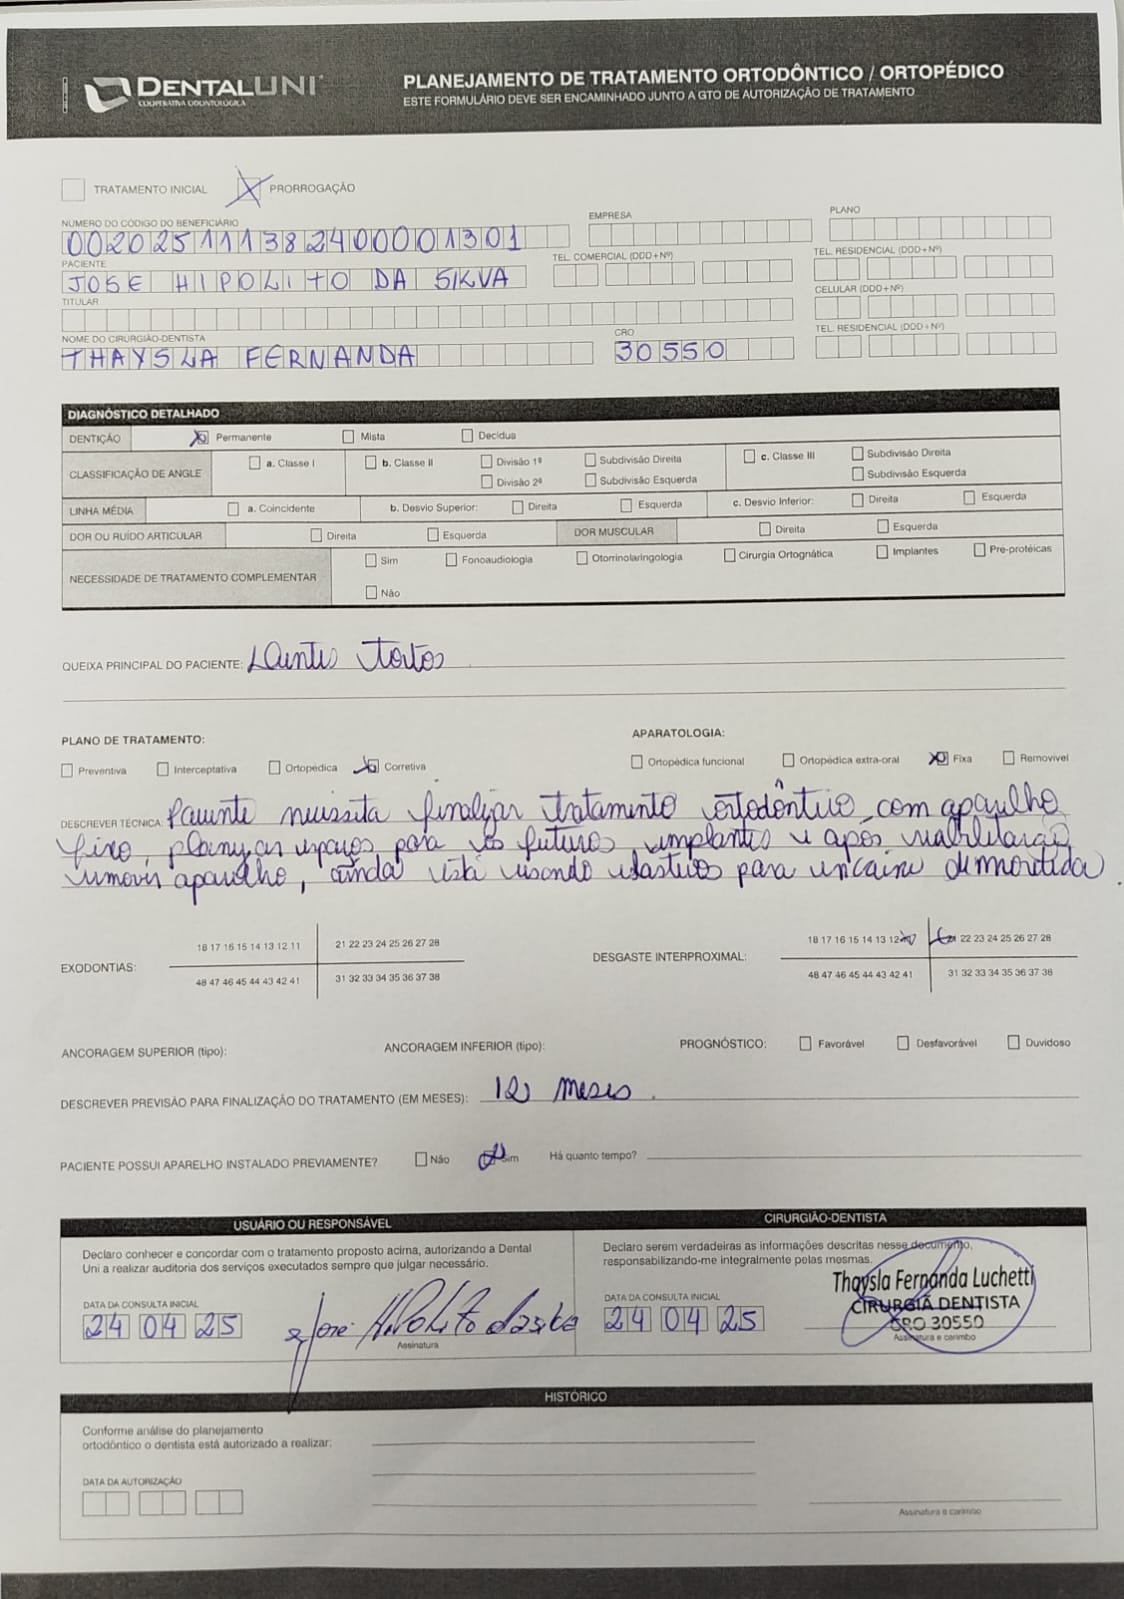 DENTALUNI
COOPERATIVA ODONTOLÓGICA
PLANEJAMENTO DE TRATAMENTO ORTODÔNTICO / ORTOPÉDICO
ESTE FORMULÁRIO DEVE SER ENCAMINHADO JUNTO A GTO DE AUTORIZAÇÃO DE TRATAMENTO
TRATAMENTO INICIAL PRORROGAÇÃO
NÚMERO DO CÓDIGO DO BENEFICIÁRIO EMPRESA PLANO
00202511138240001301
PACIENTE TEL. COMERCIAL (DDD+Nº) TEL. RESIDENCIAL (DDD+Nº)
JOSE HIPOLITO DA SILVA
TITULAR CELULAR (DDD+Nº)
NOME DO CIRURGIÃO-DENTISTA CRO TEL. RESIDENCIAL (DDD+Nº)
THAYSLA FERNANDA 30550
DIAGNÓSTICO DETALHADO
DENTIÇÃO Permanente Mista Decídua
CLASSIFICAÇÃO DE ANGLE a. Classe I b. Classe II Divisão 1ª Subdivisão Direita c. Classe III Subdivisão Direita
Divisão 2ª Subdivisão Esquerda Subdivisão Esquerda
LINHA MÉDIA a. Coincidente b. Desvio Superior: Direita Esquerda c. Desvio Inferior: Direita Esquerda
DOR OU RUÍDO ARTICULAR Direita Esquerda DOR MUSCULAR Direita Esquerda
NECESSIDADE DE TRATAMENTO COMPLEMENTAR Sim Fonoaudiologia Otorrinolaringologia Cirurgia Ortognática Implantes Pré-protéicas
Não
QUEIXA PRINCIPAL DO PACIENTE: Dentes tortos
PLANO DE TRATAMENTO: APARATOLOGIA:
Preventiva Interceptativa Ortopédica Corretiva Ortopédica funcional Ortopédica extra-oral Fixa Removível
DESCREVER TÉCNICA: Paciente necessita finalizar tratamento ortodôntico com aparelho
fixo, planejar espaços para os futuros implantes e após reabilitação
remover aparelho, ainda está usando elásticos para encaixe de mordida.
EXODONTIAS: 18 17 16 15 14 13 12 11 21 22 23 24 25 26 27 28
48 47 46 45 44 43 42 41 31 32 33 34 35 36 37 38
DESGASTE INTERPROXIMAL: 18 17 16 15 14 13 12 22 23 24 25 26 27 28
48 47 46 45 44 43 42 41 31 32 33 34 35 36 37 38
ANCORAGEM SUPERIOR (tipo): ANCORAGEM INFERIOR (tipo): PROGNÓSTICO: Favorável Desfavorável Duvidoso
DESCREVER PREVISÃO PARA FINALIZAÇÃO DO TRATAMENTO (EM MESES): 12 meses.
PACIENTE POSSUI APARELHO INSTALADO PREVIAMENTE? Não Sim Há quanto tempo?
USUÁRIO OU RESPONSÁVEL CIRURGIÃO-DENTISTA
Declaro conhecer e concordar com o tratamento proposto acima, autorizando a Dental
Uni a realizar auditoria dos serviços executados sempre que julgar necessário.
Declaro serem verdadeiras as informações descritas nesse documento,
responsabilizando-me integralmente pelas mesmas.
DATA DA CONSULTA INICIAL
24 04 25
José Hipolito da Silva
Assinatura
DATA DA CONSULTA INICIAL
24 04 25
Thaysla Fernanda Luchetti
CIRURGIÃ DENTISTA
CRO 30550
Assinatura e carimbo
HISTÓRICO
Conforme análise do planejamento
ortodôntico o dentista está autorizado a realizar:
DATA DA AUTORIZAÇÃO
Assinatura e carimbo